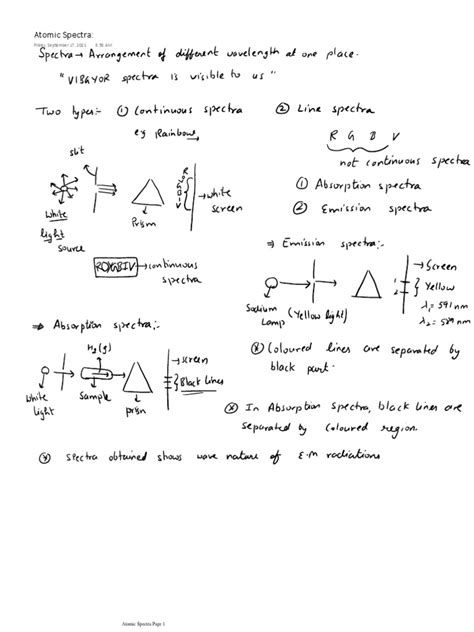 Atomic Spectra:
Friday, September 17, 2021 3:50 AM
Spectra → Arrangement of different wavelength at one place.
"VIBGYOR spectra is visible to us"
Two types:- ① Continuous spectra
eg Rainbow
slit
White
light
source
Prism
R
O
Y
G
B
I
V
→ white
screen
ROYGBIV → continuous
spectra
② Line spectra
R G B V
not continuous spectra
① Absorption spectra
② Emission spectra
⇒ Emission spectra:-
Sodium
Lamp
(Yellow light)
→ Screen
1
2
Yellow
λ₁ = 591 nm
λ₂ = 589 nm
⊛ Coloured lines are separated by
black part.
⇒ Absorption spectra:-
H₂(g)
White
light
Sample
prism
→ screen
Black Lines
⊛ In Absorption spectra, black lines are
separated by coloured region.
⊛ Spectra obtained shows wave nature of E.M radiations
Atomic Spectra Page 1